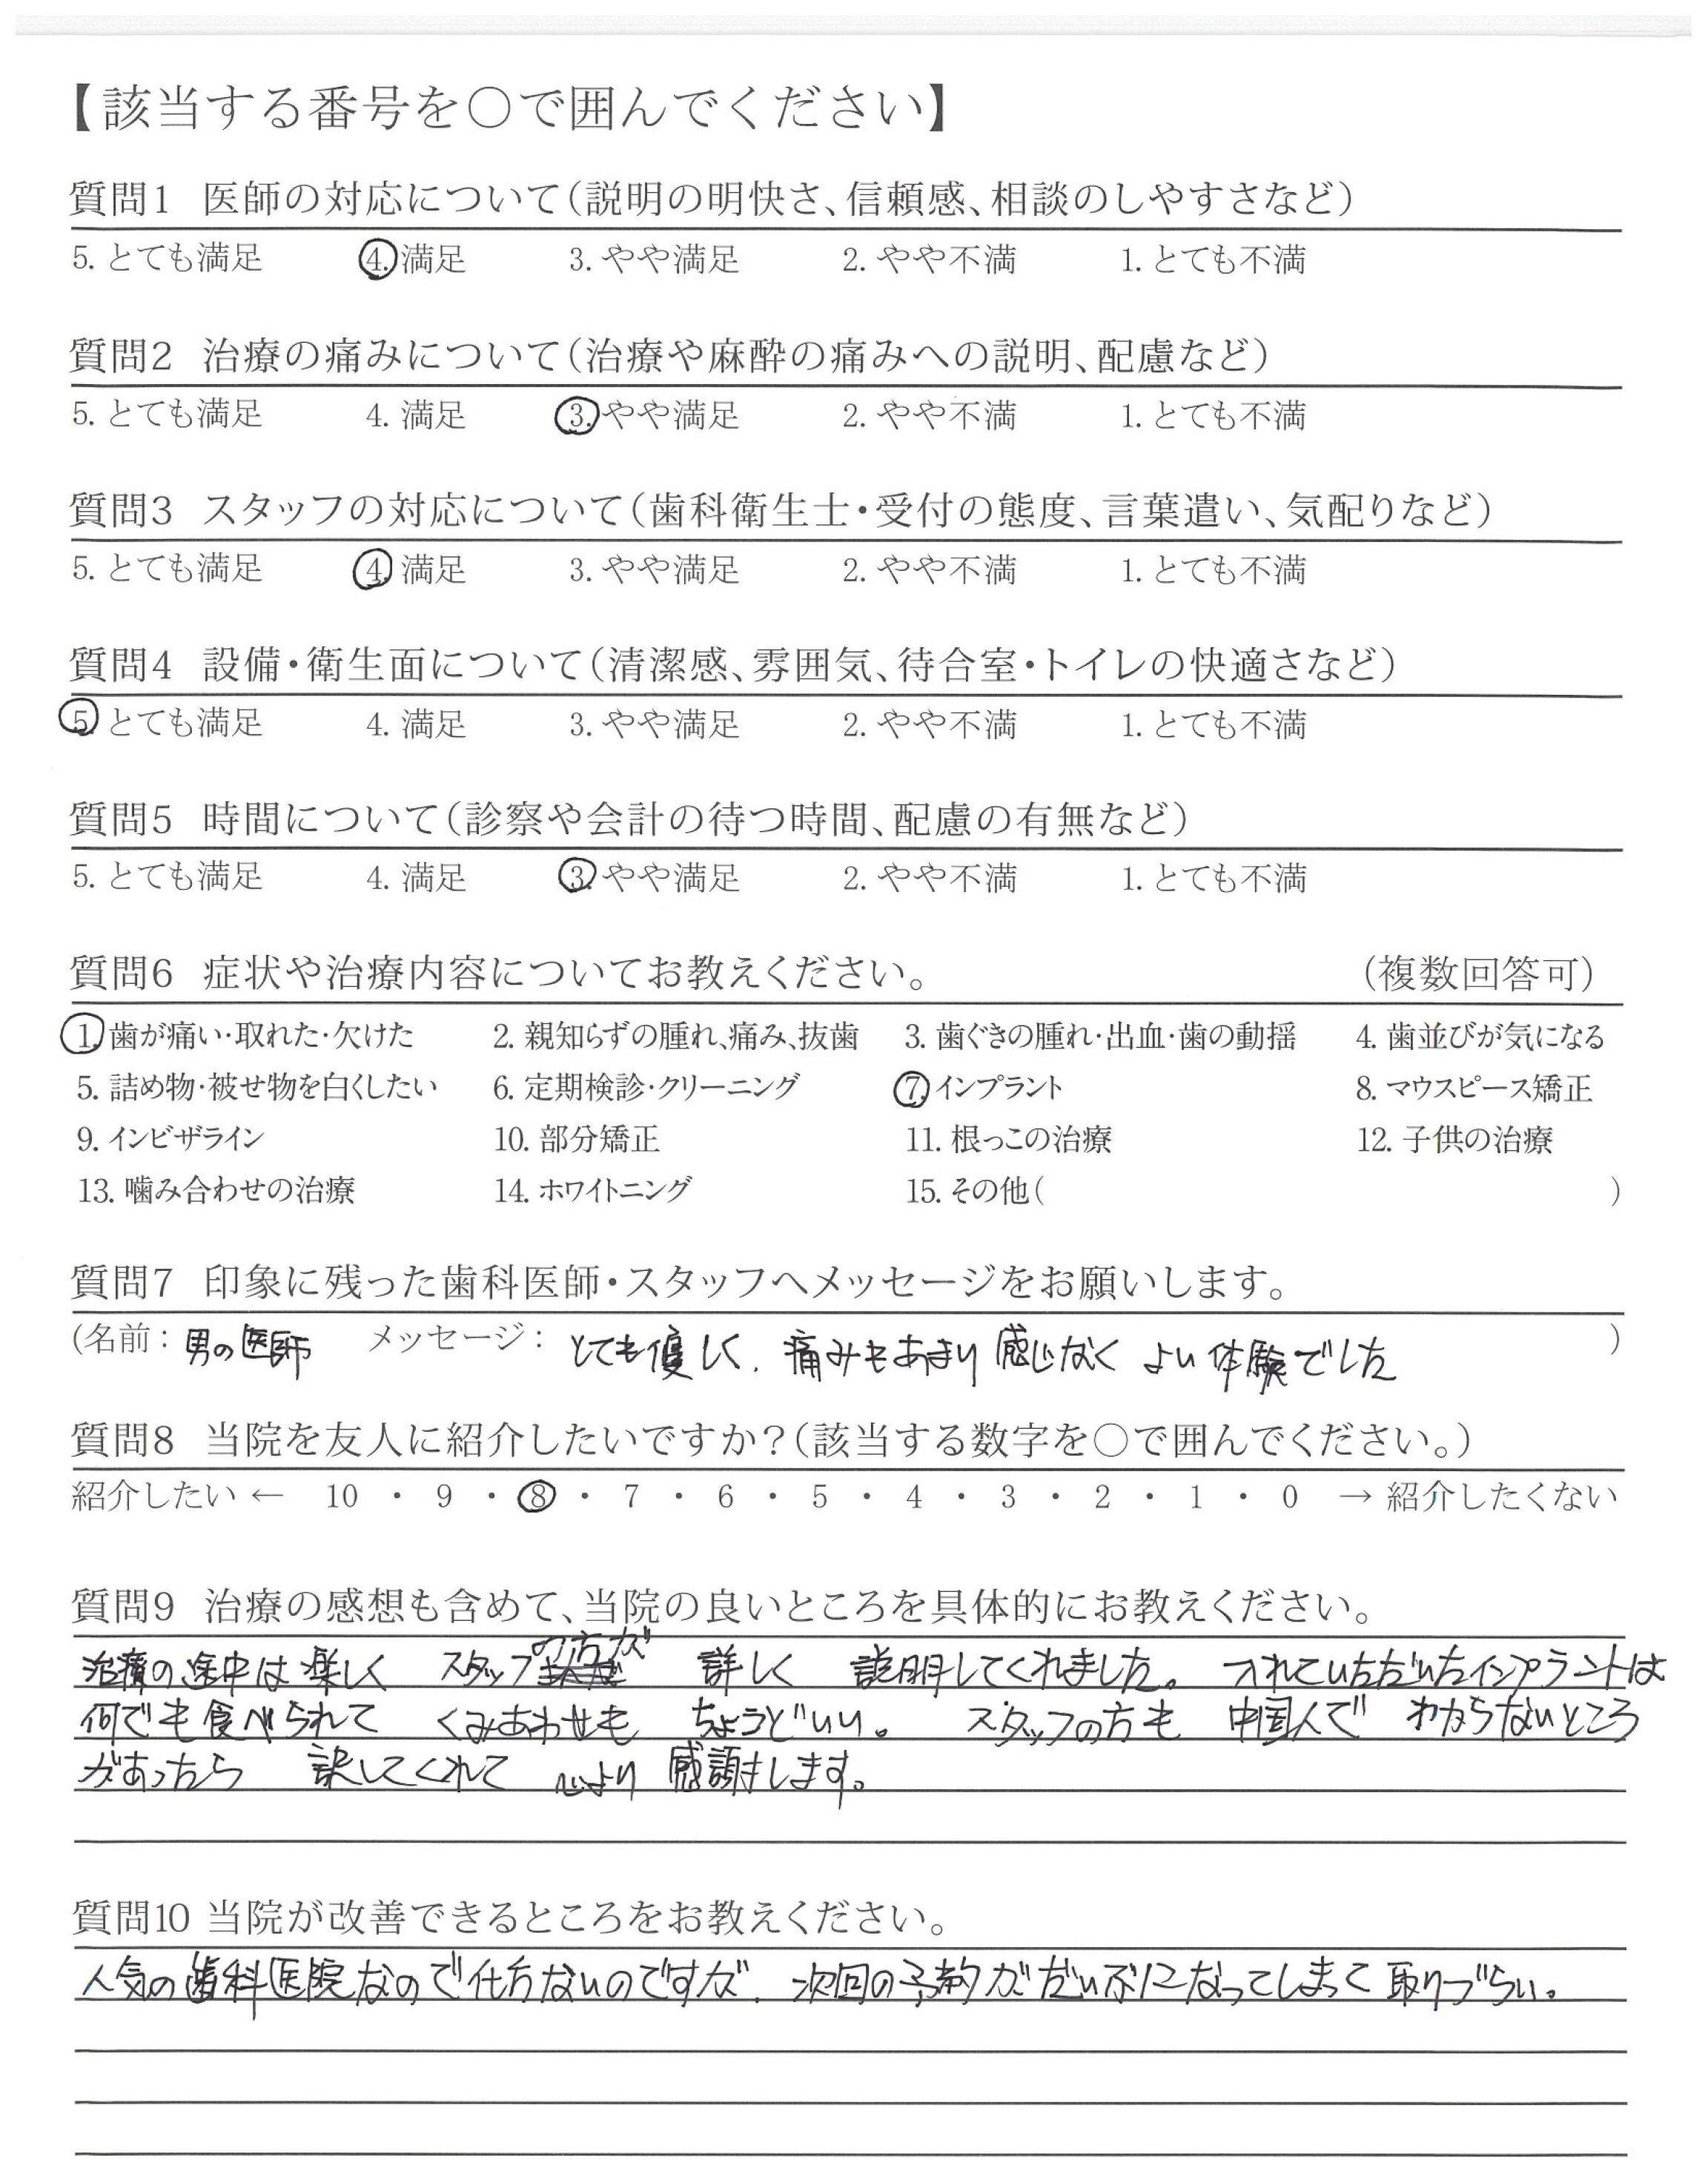 【該当する番号を○で囲んでください】
質問1 医師の対応について(説明の明快さ、信頼感、相談のしやすさなど)
5. とても満足 4. 満足 3. やや満足 2. やや不満 1. とても不満
質問2 治療の痛みについて(治療や麻酔の痛みへの説明、配慮など)
5. とても満足 4. 満足 3. やや満足 2. やや不満 1. とても不満
質問3 スタッフの対応について(歯科衛生士・受付の態度、言葉遣い、気配りなど)
5. とても満足 4. 満足 3. やや満足 2. やや不満 1. とても不満
質問4 設備・衛生面について(清潔感、雰囲気、待合室・トイレの快適さなど)
5. とても満足 4. 満足 3. やや満足 2. やや不満 1. とても不満
質問5 時間について(診察や会計の待つ時間、配慮の有無など)
5. とても満足 4. 満足 3. やや満足 2. やや不満 1. とても不満
質問6 症状や治療内容についてお教えください。 (複数回答可)
1. 歯が痛い・取れた・欠けた 2. 親知らずの腫れ、痛み、抜歯 3. 歯ぐきの腫れ・出血・歯の動揺 4. 歯並びが気になる
5. 詰め物・被せ物を白くしたい 6. 定期検診・クリーニング 7. インプラント 8. マウスピース矯正
9. インビザライン 10. 部分矯正 11. 根っこの治療 12. 子供の治療
13. 噛み合わせの治療 14. ホワイトニング 15. その他( )
質問7 印象に残った歯科医師・スタッフへメッセージをお願いします。
(名前: 男の医師 メッセージ: とても優しく、痛みもあまり感じなく よい体験でした )
質問8 当院を友人に紹介したいですか?(該当する数字を○で囲んでください。)
紹介したい ← 10 ・ 9 ・ 8 ・ 7 ・ 6 ・ 5 ・ 4 ・ 3 ・ 2 ・ 1 ・ 0 → 紹介したくない
質問9 治療の感想も含めて、当院の良いところを具体的にお教えください。
治療の途中は楽しく スタッフの方が 詳しく 説明してくれました。 入れていただいたインプラントは
何でも食べられて くみあわせも ちょうどいい。 スタッフの方も 中国人で わからないところ
があったら 訳してくれて 心より 感謝します。
質問10 当院が改善できるところをお教えください。
人気の歯科医院なので仕方ないのですが、次回の予約がだいぶ になってしまって取りづらい。